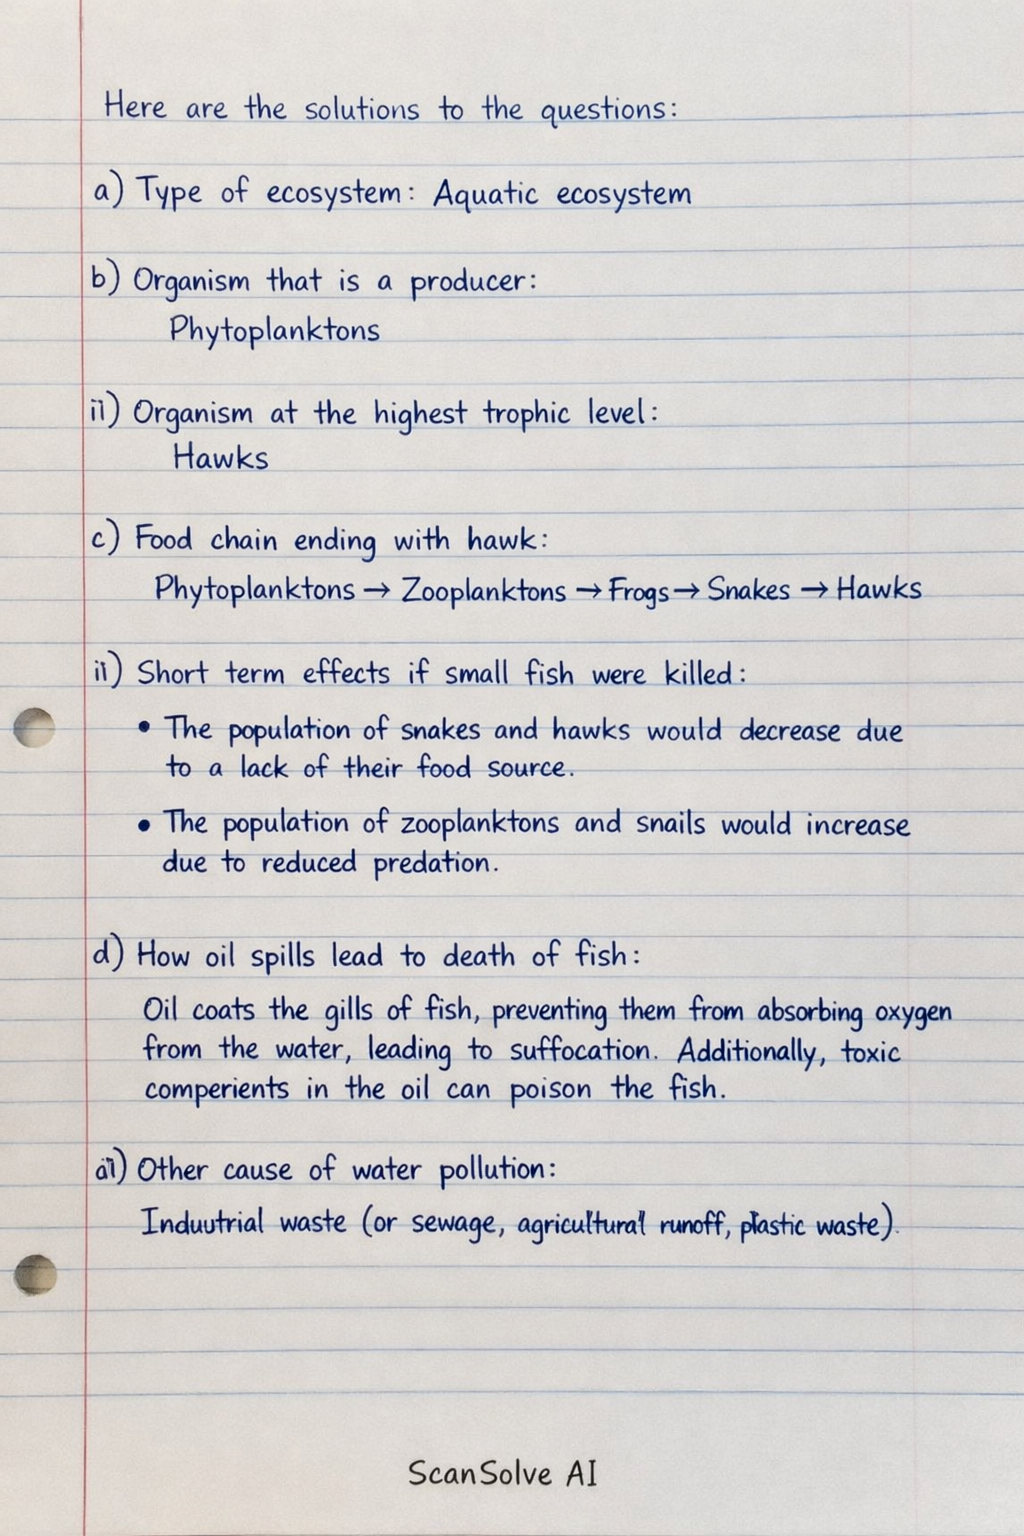 Here are the solutions to the questions:
a) Type of ecosystem: Aquatic ecosystem
b) Organism that is a producer:
Phytoplanktons
ii) Organism at the highest trophic level:
Hawks
c) Food chain ending with hawk:
Phytoplanktons → Zooplanktons → Frogs → Snakes → Hawks
ii) Short term effects if small fish were killed:
• The population of snakes and hawks would decrease due
to a lack of their food source.
• The population of zooplanktons and snails would increase
due to reduced predation.
d) How oil spills lead to death of fish:
Oil coats the gills of fish, preventing them from absorbing oxygen
from the water, leading to suffocation. Additionally, toxic
comperients in the oil can poison the fish.
ai) Other cause of water pollution:
Induutrial waste (or sewage, agricultural runoff, plastic waste).
ScanSolve AI